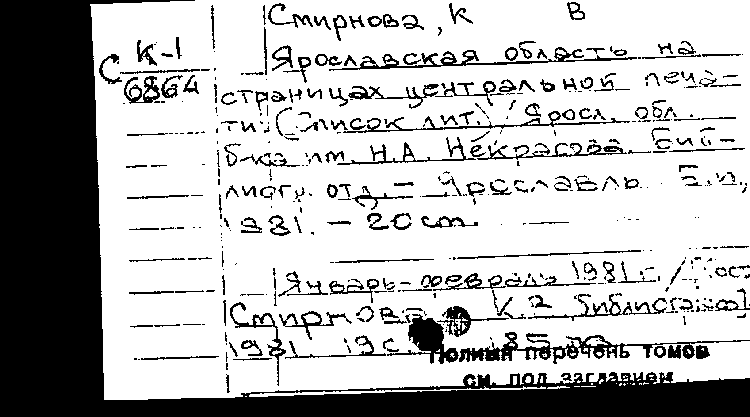 Смирнова, К В
С К-1
6864
Ярославская область на
страницах центральной печа-
ти. (Список лит.) / Яросл. обл.
б-ка им. Н.А. Некрасова. Биб-
лиогр. отд. – Ярославль Б.и.,
1981. – 20 см.
Январь-февраль 1981 г. / Сост.
Смирнова К.
1981. 19 с.
Полный перечень томов
см. под заглавием